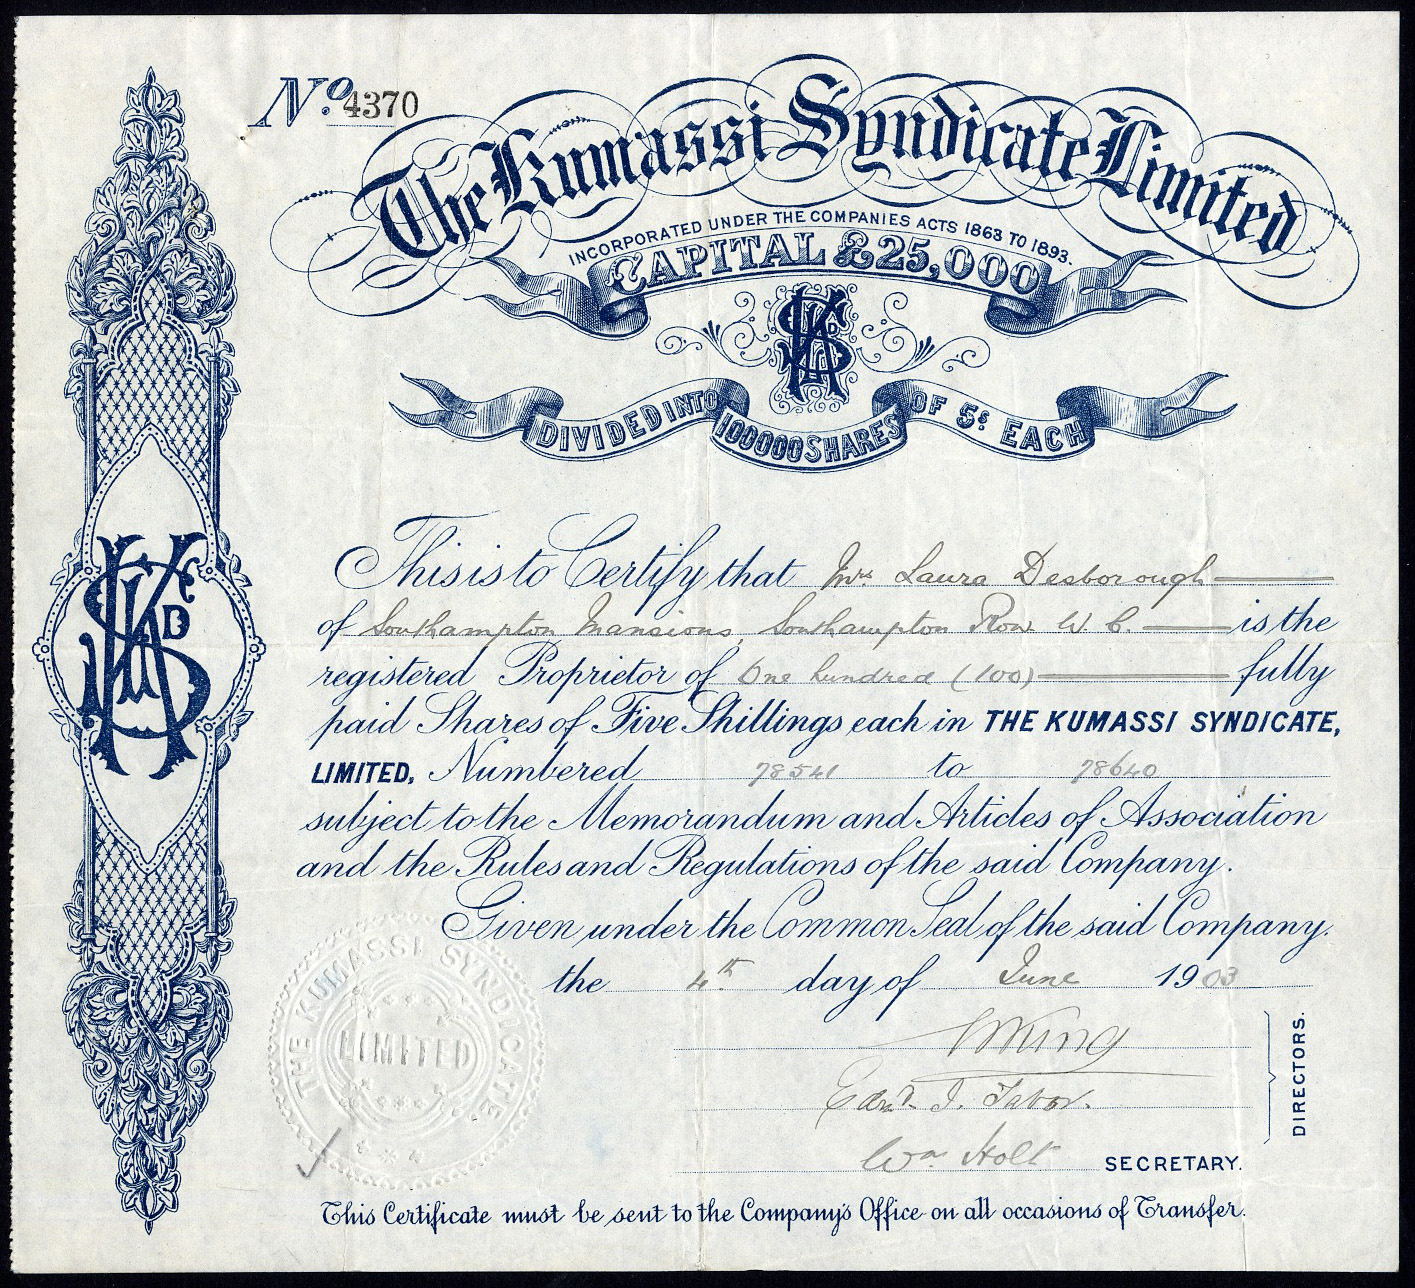 No. 4370
The Kumassi Syndicate Limited
INCORPORATED UNDER THE COMPANIES ACTS 1863 TO 1893.
CAPITAL £25,000
KSLD
DIVIDED INTO 100000 SHARES OF 5s EACH
KSLD
This is to Certify that Mrs Laura Desborough
of Southampton Mansions, Southampton Row W. C. is the
registered Proprietor of One hundred (100) fully
paid Shares of Five Shillings each in THE KUMASSI SYNDICATE,
LIMITED, Numbered 78541 to 78640
subject to the Memorandum and Articles of Association
and the Rules and Regulations of the said Company.
Given under the Common Seal of the said Company,
the 4th day of June 1903
THE KUMASSI SYNDICATE,
LIMITED
King
Edwd. J. Tabor.
DIRECTORS.
Wm. Holt SECRETARY.
This Certificate must be sent to the Company's Office on all occasions of Transfer.